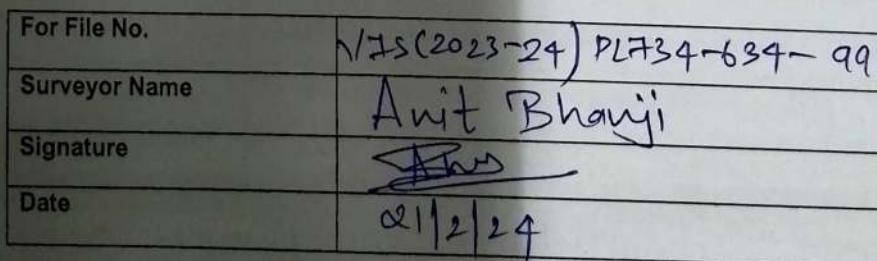 For File No. VIS(2023-24) PL734-634-99
Surveyor Name Anit Bhanji
Signature
Date 21/2/24